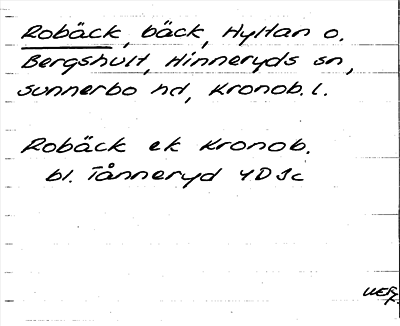 Robäck, bäck, Hyltan o.
Bergshult, Hinneryds sn,
Sunnerbo hd, Kronob. l.
Robäck ek Kronob.
bl. Tånneryd 4D5c